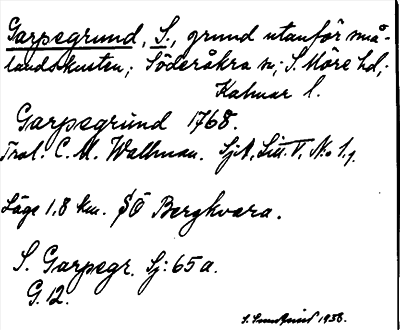 Garpsgrund, S., grund utanför små-
landskusten; Söderåkra sn; S. Möre hd;
Kalmar l.
Garpsgrund 1768.
Tral. C. M. Wallman. SjA, Litt. V, No 1.
Läge 1,8 km. SÖ Bergkvara.
S. Garpsgr. Sj: 65a.
G. 12.
1938.